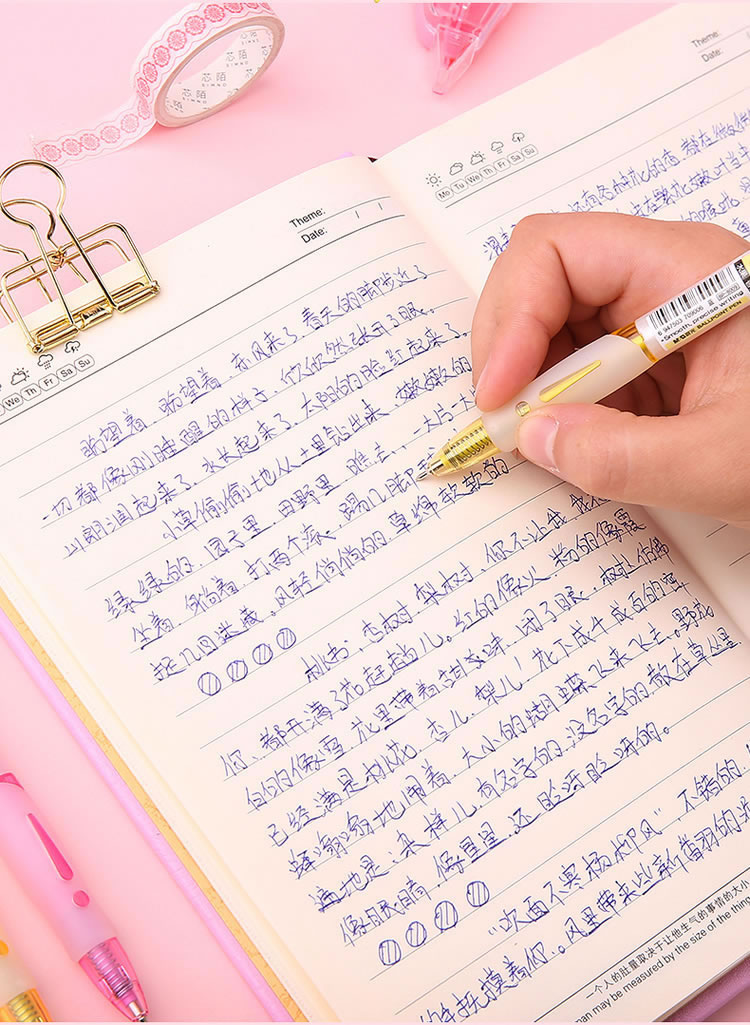 芯陌
SIMNO
芯陌
Theme:
Date:
Mo Tu We Th Fr Sa Su
Theme:
Date:
We Th Fr Sa Su
盼望着，盼望着，东风来了，春天的脚步近了
一切都像刚睡醒的样子，欣欣然张开了眼。
山朗润起来了，水长起来了，太阳的脸红起来了。
小草偷偷地从土里钻出来，嫩嫩的
绿绿的，园子里，田野里，瞧去，一大片
坐着，躺着，打两个滚，踢几脚
捉几回迷藏。风轻俏俏的，草绵软软的
桃树，杏树，梨树，你不让我，我
你，都开满了花赶趟儿。红的像火，粉的像霞
白的像雪，花里带着甜味，闭了眼，树上仿佛
已经满是桃花，杏儿，梨儿！花下成千成百的蜜
蜂嗡嗡地闹着，大小的蝴蝶飞来飞去。野花
遍地是：杂样儿，有名字的，没名字的散在草丛里
像眼睛，像星星，还眨呀眨的。
“吹面不寒杨柳风”，不错的，
的手抚摸着你。风里带来些新翻的
一个人的肚量取决于让他生气的事情的大小
man may be measured by the size of the thing
还有各种花的香，都在微微
6 947503 709006
Smooth, precise writing
BALLPOINT PEN